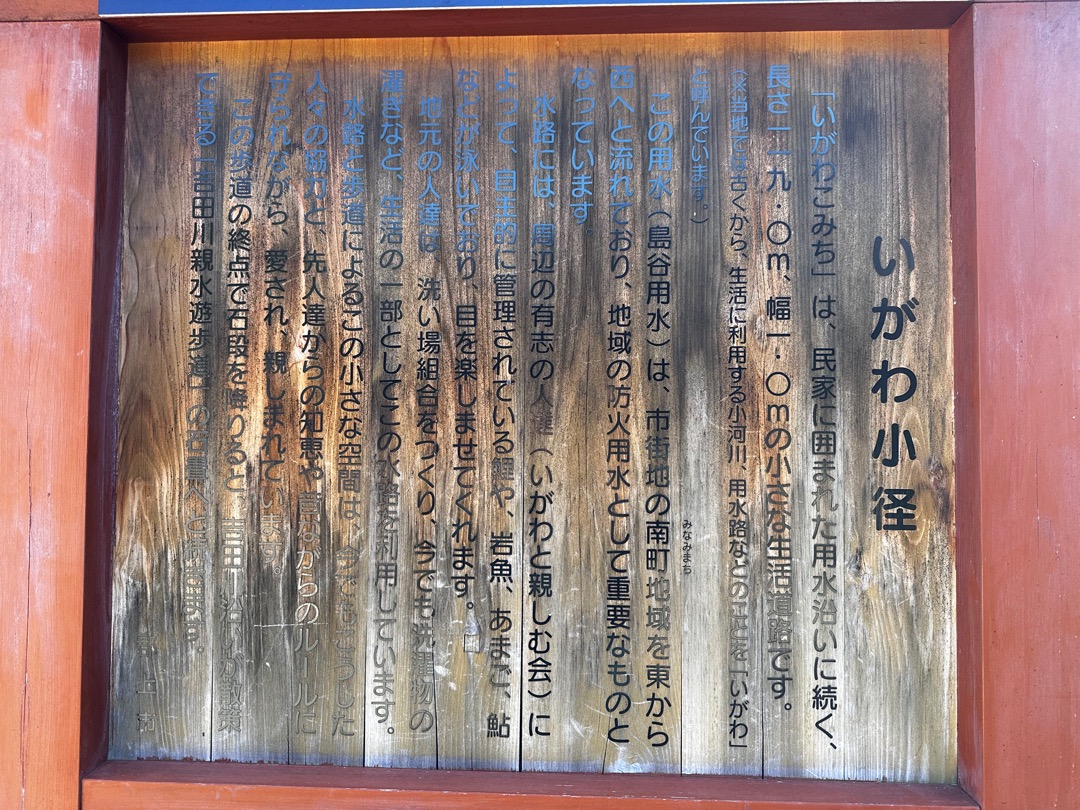 いがわ小径
「いがわこみち」は、民家に囲まれた用水沿いに続く、
長さ一一九・〇m、幅一・〇mの小さな生活道路です。
(※当地では古くから、生活に利用する小河川、用水路などのことを「いがわ」
と呼んでいます。)
この用水(島谷用水)は、市街地の南町地域を東から
みなみまち
西へと流れており、地域の防火用水として重要なものと
なっています
水路には、周辺の有志の人達(いがわと親しむ会)に
よって、自主的に管理されている鯉や、岩魚、あまご、鮎
などが泳いでおり、目を楽しませてくれます。
地元の人達は、洗い場組合をつくり、今でも洗濯物の
濯ぎなど、生活の一部としてこの水路を利用しています。
水路と歩道によるこの小さな空間は、今でもこうした
人々の協力と、先人達からの知恵や昔ながらのルールに
守られながら、愛され、親しまれています
この歩道の終点で石段を降りると、吉田川沿いが散策
できる「吉田川親水遊歩道」の